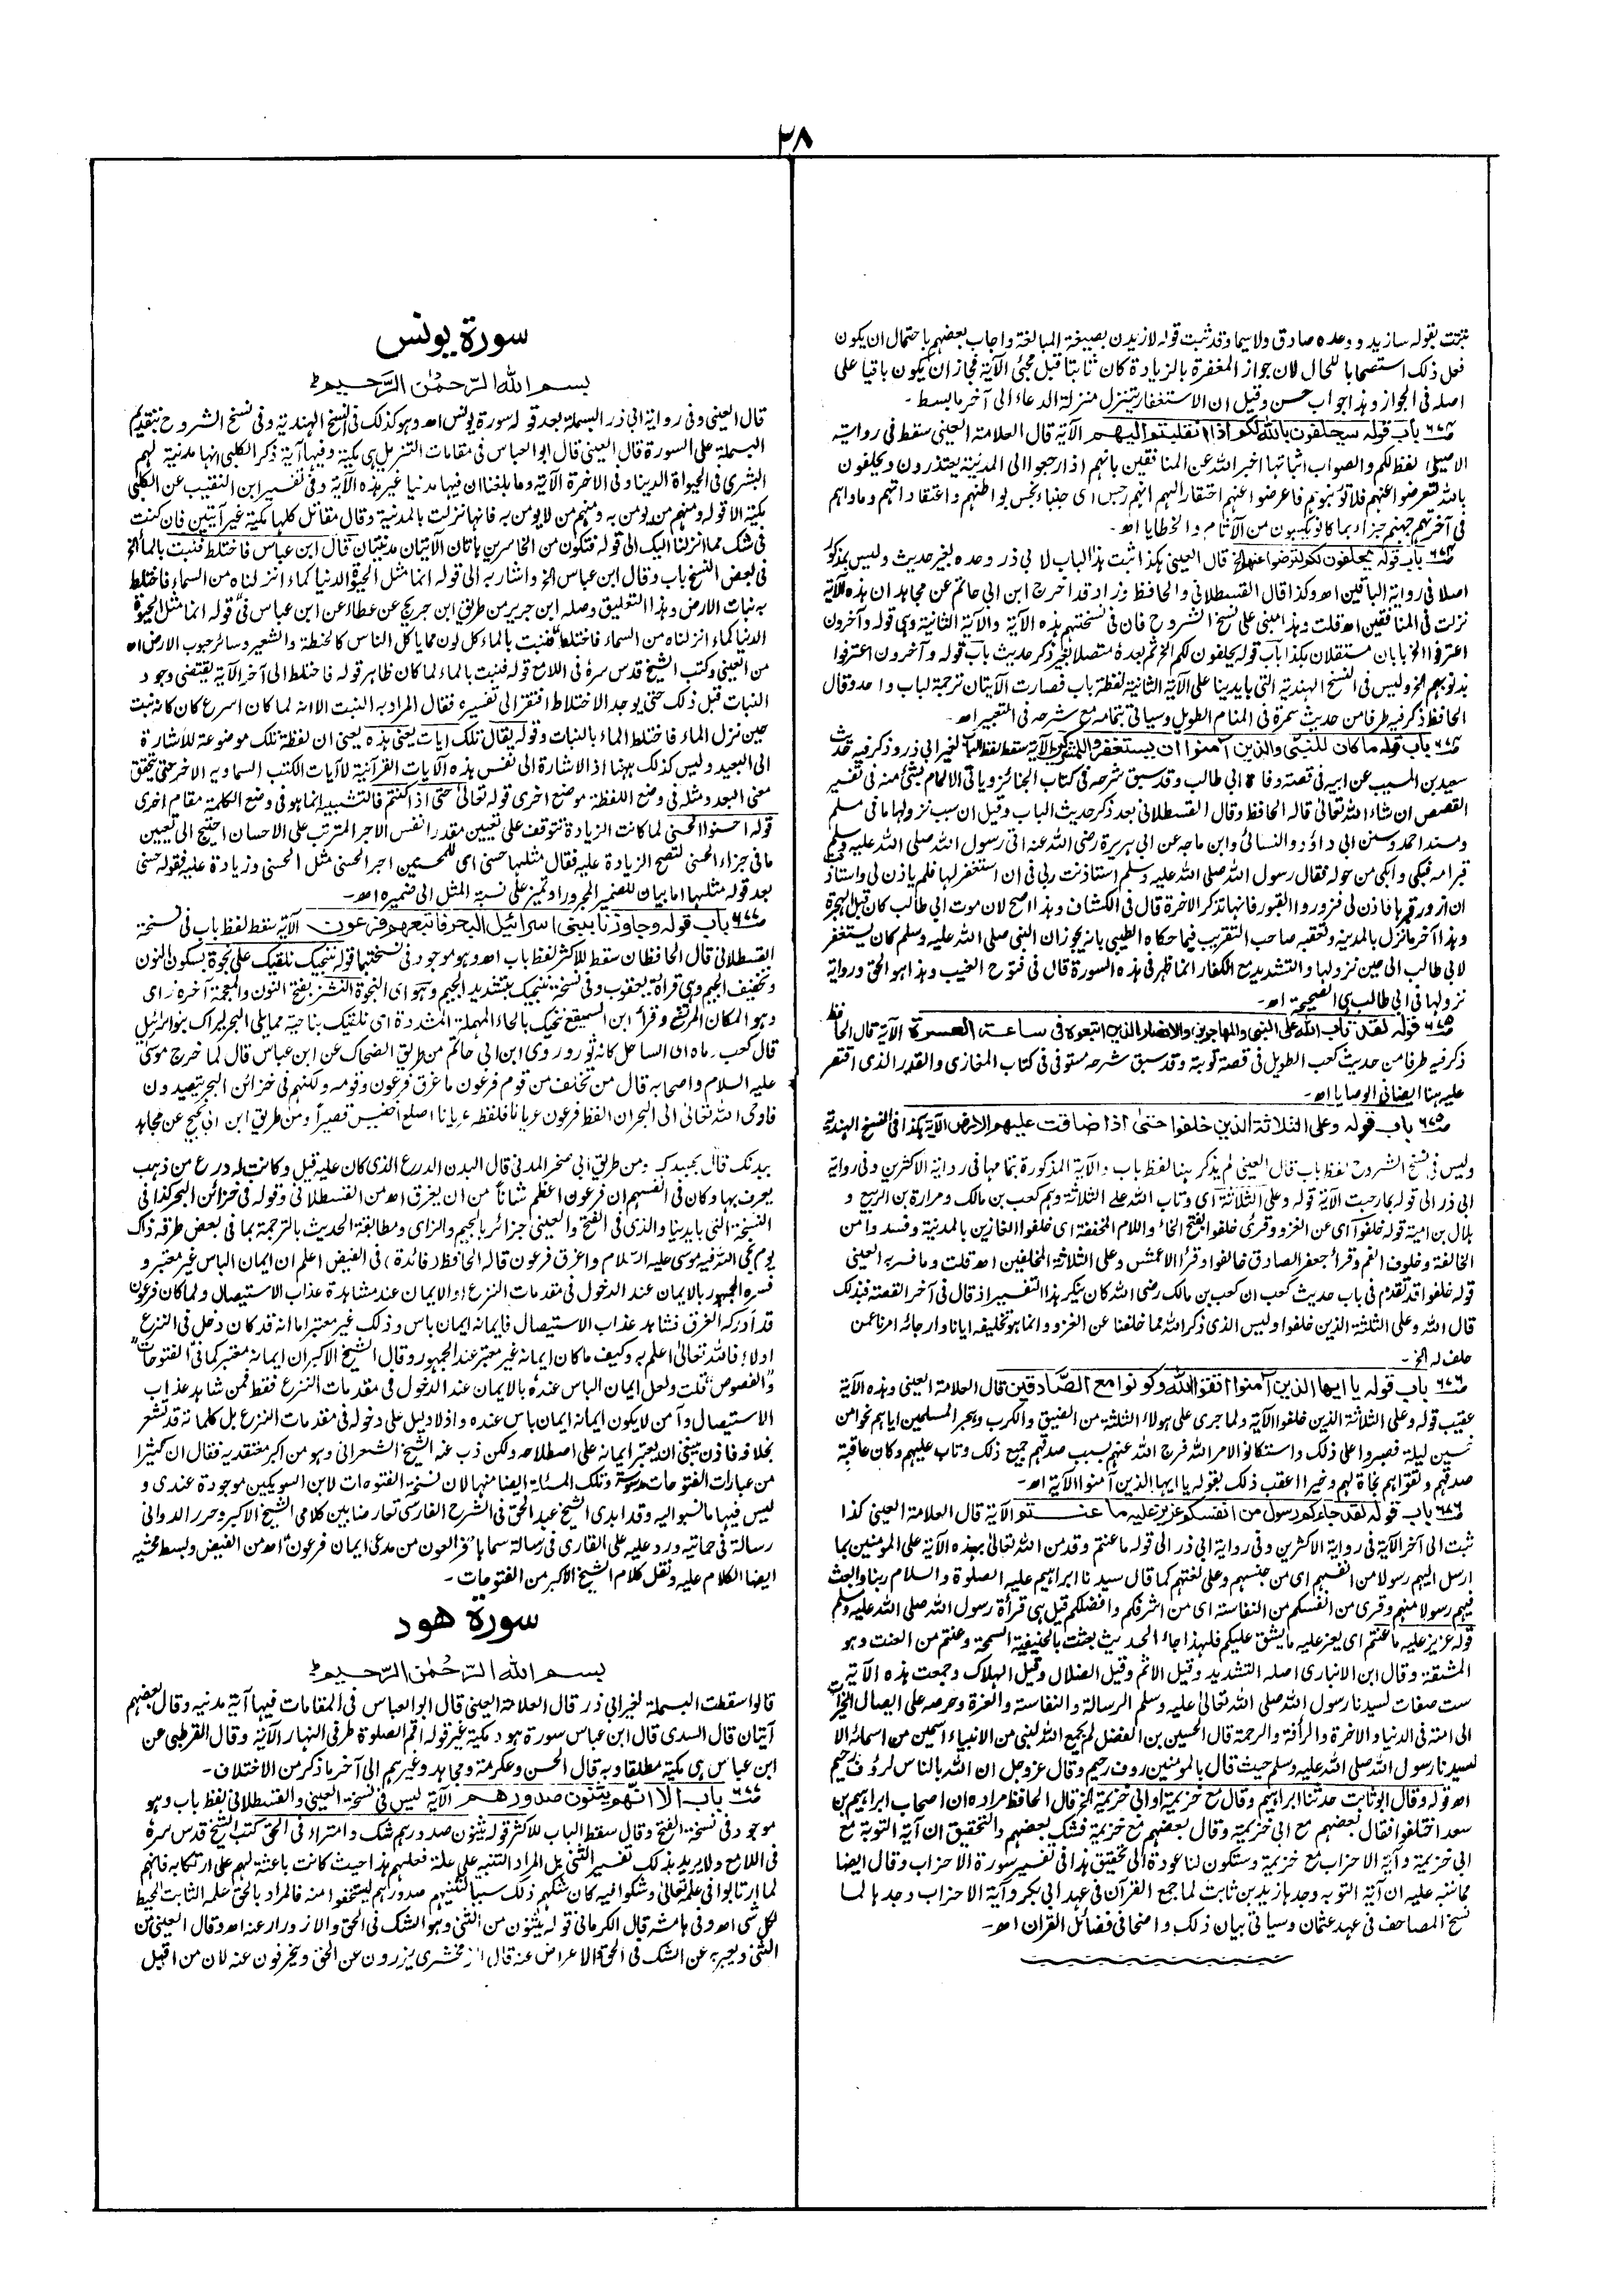 ٣٨
ثبتت بقوله سازيد ووعده صادق ولاسيما وقد ثبت قوله لازيدن بصيغة المبالغة واجاب بعضهم باحتمال ان يكون
فعل ذلك استصحابا للحال لان جواز المغفرة بالزيادة كان ثابتا قبل مجئ الآية فجاز ان يكون باقيا على
اصله فى الجواز وهذا جواب حسن وقيل ان الاستغفار يتنزل منزلة الدعاء الى آخر ما بسط۔
٦٧٤ باب قوله سيحلفون بالله لكم اذا انقلبتم اليهم الآية قال العلامة العينى سقط فى رواية
الاصيلى لفظ لكم والصواب اثباتها اخبر الله عن المنافقين بانهم اذا رجعوا الى المدينة يعتذرون ويحلفون
بالله لتعرضوا عنهم فلا تؤنبوهم فاعرضوا عنهم احتقارا لهم انهم رجس اى جبناء نجس بواطنهم واعتقاداتهم وماواهم
فى آخرتهم جهنم جزاء بما كانوا يكسبون من الآثام والخطايا اھ۔
٦٧٤ باب قوله يحلفون لكم لترضوا عنهم الخ قال العينى هكذا ثبت هذا الباب لابى ذر وحده بغير حديث وليس بمذكور
اصلا فى رواية الباقين اھ وكذا قال القسطلانى والحافظ وزاد قد اخرج ابن ابى حاتم عن مجاهد ان هذه الآية
نزلت فى المنافقين اھ قلت وهذا مبنى على نسخ الشروح فان فى نسختهم هذه الآية والآية الثانية وهى قوله وآخرون
اعترفوا الخ بابان مستقلان هكذا باب قوله يحلفون لكم الخ ثم بعدة متصلا بغير ذكر حديث باب قوله وآخرون اعترفوا
بذنوبهم الخ وليس فى النسخ الهندية التى بايدينا على الآية الثانية لفظة باب فصارت الآيتان ترجمة لباب واحد وقال
الحافظ ذكر فيه طرفا من حديث سمرة فى المنام الطويل وسياتى بتمامه مع شرحه فى التعبير اھ۔
٦٧٤ باب قوله ما كان للنبى والذين آمنوا ان يستغفروا للمشركين الآية سقط لفظ الباب لغير ابى ذر وذكر فيه حديث
سعيد بن المسيب عن ابيه فى قصة وفاة ابى طالب وقد سبق شرحه فى كتاب الجنائز وياتى الالمام بشئ منه فى تفسير
القصص ان شاء الله تعالى قاله الحافظ وقال القسطلانى بعد ذكر حديث الباب وقيل ان سبب نزولها ما فى مسلم
ومسند احمد وسنن ابى داؤد والنسائى وابن ماجه عن ابى هريرة رضى الله عنه اتى رسول الله صلى الله عليه وسلم
قبر امه فبكى وابكى من حوله فقال رسول الله صلى الله عليه وسلم استاذنت ربى فى ان استغفر لها فلم ياذن لى واستاذنت
ان ازور قبرها فاذن لى فزوروا القبور فانها تذكر الآخرة قال فى الكشاف وهذا اصح لان موت ابى طالب كان قبل الهجرة
وهذا آخر ما نزل بالمدينة وتعقبه صاحب التقريب فيما حكاه الطيبى بانه يجوز ان النبى صلى الله عليه وسلم كان يستغفر
لابى طالب الى حين نزولها والتشديد مع الكفار انما ظهر فى هذه السورة قال فى فتوح الغيب وهذا هو الحق ورواية
نزولها فى ابى طالب هى الصحيحة اھ۔
٦٧٥ قوله لقد تاب الله على النبى والمهاجرين والانصار الذين اتبعوه فى ساعة العسرة الآية قال الحافظ
ذكر فيه طرفا من حديث كعب الطويل فى قصة توبته وقد سبق شرحه مستوفى فى كتاب المغازى والقدر الذى اقتصر
عليه هنا ايضا فى الوصايا اھ۔
٦٧٥ باب قوله وعلى الثلاثة الذين خلفوا حتى اذا ضاقت عليهم الارض الآية هكذا فى النسخ الهندية
وليس فى نسخ الشروح لفظ باب قال العينى لم يذكر هنا لفظ باب والآية المذكورة بتمامها فى رواية الاكثرين وفى رواية
ابى ذر الى قوله بما رحبت الآية قوله وعلى الثلاثة اى وتاب الله على الثلاثة وهم كعب بن مالك ومرارة بن الربيع و
هلال بن امية قوله خلفوا اى عن الغزو وقرئ خلفوا بفتح الخاء واللام المخففة اى خلفوا الغازين بالمدينة وفسد وامن
الخالفة وخلوف الفم وقرأ جعفر الصادق خالفوا وقرأ الاعمش وعلى الثلاثة المخلفين اھ قلت وما فسر به العينى
قوله خلفوا قد تقدم فى باب حديث كعب ان كعب بن مالك رضى الله كان ينكر هذا التفسير اذ قال فى آخر القصة فبذلك
قال الله وعلى الثلثة الذين خلفوا وليس الذى ذكر الله مما خلفنا عن الغزو وانما هو تخليفه ايانا وارجائه امرنا عمن
حلف له الخ۔
٦٧٦ باب قوله يا ايها الذين آمنوا اتقوا الله وكونوا مع الصادقين قال العلامة العينى وهذه الآية
عقيب قوله وعلى الثلاثة الذين خلفوا الآية ولما جرى على هولاء الثلثة من الضيق والكرب وهجر المسلمين اياهم نحوا من
خمسين ليلة فصبروا على ذلك واستكانوا لامر الله فرج الله عنهم بسبب صدقهم جميع ذلك وتاب عليهم وكان عاقبة
صدقهم وتقواهم نجاة لهم وخيرا اعقب ذلك بقوله يا ايها الذين آمنوا الآية اھ۔
٦٧٦ باب قوله لقد جاءكم رسول من انفسكم عزيز عليه ما عنتم الآية قال العلامة العينى كذا
ثبت الى آخر الآية فى رواية الاكثرين وفى رواية ابى ذر الى قوله ما عنتم وقد من الله تعالى بهذه الآية على المومنين بما
ارسل اليهم رسولا من انفسهم اى من جنسهم وعلى لغتهم كما قال سيدنا ابراهيم عليه الصلوة والسلام ربنا وابعث
فيهم رسولا منهم وقرئ من انفسكم من النفاسة اى من اشرفكم وافضلكم قيل هى قرأة رسول الله صلى الله عليه وسلم
قوله عزيز عليه ما عنتم اى يعز عليه ما يشق عليكم فلهذا جاء الحديث بعثت بالحنيفية السمحة وعنتم من العنت وهو
المشقة وقال ابن الانبارى اصله التشديد وقيل الاثم وقيل الضلال وقيل الهلاك وجمعت هذه الآية
ست صفات لسيدنا رسول الله صلى الله تعالى عليه وسلم الرسالة والنفاسة والعزة وحرصه على ايصال الخيرات
الى امته فى الدنيا والاخرة والرأفة والرحمة قال الحسين بن الفضل لم يجمع الله لنبى من الانبياء اسمين من اسمائه الا
لسيدنا رسول الله صلى الله عليه وسلم حيث قال بالمومنين روف رحيم وقال عزوجل ان الله بالناس لرؤف رحيم
اھ قوله وقال ابو ثابت حدثنا ابراهيم وقال مع خزيمة او ابى خزيمة الخ قال الحافظ مراده ان اصحاب ابراهيم بن
سعد اختلفوا فقال بعضهم مع ابى خزيمة وقال بعضهم مع خزيمة فشك بعضهم والتحقيق ان آية التوبة مع
ابى خزيمة وآية الاحزاب مع خزيمة وستكون لنا عودة الى تحقيق هذا فى تفسير سورة الاحزاب وقال ايضا
مما ننبه عليه ان آية التوبه وجدها زيد بن ثابت لما جمع القرآن فى عهد ابى بكر وآية الاحزاب وجدها لما
نسخ المصاحف فى عهد عثمان وسياتى بيان ذلك واضحا فى فضائل القران اھ۔
سورة يونس
بسم الله الرحمٰن الرحيم
قال العينى وفى رواية ابى ذر البسملة بعد قوله سورة يونس اھ وهو كذلك فى النسخ الهندية وفى نسخ الشروح بتقديم
البسملة على السورة قال العينى قال ابو العباس فى مقامات التنزيل هى مكية وفيها آية ذكر الكلبى انها مدنية لهم
البشرى فى الحيواة الدنيا وفى الآخرة الآية وما بلغنا ان فيها مدنيا غير هذه الآية وفى تفسير ابن النقيب عن الكلبى
مكية الا قوله ومنهم من يومن به ومنهم من لا يومن به فانها نزلت بالمدنية وقال مقاتل كلها مكية غير آيتين فان كنت
فى شك مما انزلنا اليك الى قوله فتكون من الخاسرين هاتان الآيتان مدنيتان قال ابن عباس فاختلط فنبت بالماء الخ
فى بعض النسخ باب وقال ابن عباس الخ واشار به الى قوله انما مثل الحيوة الدنيا كماء انزلناه من السماء فاختلط
به نبات الارض وهذا التعليق وصله ابن جرير من طريق ابن جريج عن عطاء عن ابن عباس فى قوله انما مثل الحيوة
الدنيا كماء انزلناه من السماء فاختلط فنبت بالماء كل لون مما ياكل الناس كالحنطة والشعير وسائر حبوب الارض اھ
من العينى وكتب الشيخ قدس سره فى اللامع قوله فنبت بالماء لما كان ظاهر قوله فاختلط الى آخر الآية يقتضى وجود
النبات قبل ذلك حتى يوجد الاختلاط افتقر الى تفسيره فقال المراد به النبت الا انه لما كان اسرع كان كانه نبت
حين نزل الماء فاختلط الماء بالنبات وقوله يقال تلك ايات يعنى هذه يعنى ان لفظة تلك موضوعة للاشارة
الى البعيد وليس كذلك ههنا اذ الاشارة الى نفس هذه الآيات القرآنية لا آيات الكتب السماوية الاخر حتى يتحقق
معنى البعد ومثله فى وضع اللفظة موضع اخرى قوله تعالى حتى اذا كنتم فالتشبيه انما هو فى وضع الكلمة مقام اخرى
قوله احسنوا الحسنى لما كانت الزيادة تتوقف على تعيين مقدر انفس الاجر المترتب على الاحسان احتيج الى تعيين
ما فى جزاء الحسنى لتصح الزيادة عليه فقال مثلها حسنى اى للمحسنين اجر الحسنى مثل الحسنى وزيادة عليه فقوله حسنى
بعد قوله مثلها اما بيان للضمير المجرور او تميز على نسبة المثل الى ضميره اھ۔
٦٧٧ باب قوله وجاوزنا ببنى اسرائيل البحر فاتبعهم فرعون الآية سقط لفظ باب فى نسخة
القسطلانى قال الحافظان سقط للاكثر لفظ باب اھ وهو موجود فى نسختها قوله ننجيك نلقيك على نجوة بسكون النون
وتخفيف الجيم وهى قرأة يعقوب وفى نسخة ننجيك بتشديد الجيم وهو اى النجوة النشز بفتح النون والمعجمة آخره زاى
وهو المكان المرتفع وقرأ ابن السميفع ننحيك بالحاء المهملة المشددة اى نلقيك بناحية مما يلى البحر ليراك بنو اسرائيل
قال كعب رماه الى الساحل كانه ثور وروى ابن ابى حاتم من طريق الضحاك عن ابن عباس قال لما خرج موسى
عليه السلام واصحابه قال من تخلف من قوم فرعون ما غرق فرعون وقومه ولكنهم فى خزائن البحر يتصيدون
فاوحى الله تعالى الى البحر ان الفظ فرعون عريانا فلفظه عريانا اصلع اخنيس قصيرا ومن طريق ابن ابى نجيح عن مجاهد
ببدنك قال بجسدك ومن طريق ابى صخر المدنى قال البدن الدرع الذى كان عليه قيل وكانت له درع من ذهب
يعرف بها وكان فى انفسهم ان فرعون اعظم شانا من ان يغرق اھ من القسطلانى وقوله فى خزائن البحر كذا فى
النسخة التى بايدينا والذى فى الفتح والعينى جزائر بالجيم والزاى ومطابقة الحديث بالترجمة بما فى بعض طرقه ذاك
يوم نجى الله فيه موسى عليه السلام واغرق فرعون قاله الحافظ (فائدة) فى الفيض اعلم ان ايمان الباس غير معتبر و
فسره الجمهور بالايمان عند الدخول فى مقدمات النزع او الايمان عند مشاهدة عذاب الاستيصال ولما كان فرعون
قد ادركه الغرق فشاهد عذاب الاستيصال فايمانه ايمان باس وذلك غير معتبر اما انه قد كان دخل فى النزع
اولا؛ فالله تعالى اعلم به وكيف ما كان ايمانه غير معتبر عند الجمهور وقال الشيخ الاكبر ان ايمانه معتبر كما فى "الفتوحات"
والفصوص قلت ولعل ايمان الباس عنده بالايمان عند الدخول فى مقدمات النزع فقط فمن شاهد عذاب
الاستيصال وآمن لا يكون ايمانه ايمان باس عنده واذ لا دليل على دخوله فى مقدمات النزع بل كلماته قد تشعر
بخلافه فاذن ينبغى ان يعتبر ايمانه على اصطلاحه ولكن ذب عنه الشيخ الشعرانى وهو من اكبر معتقديه فقال ان كثيرا
من عبارات الفتوحات مدسوسة وتلك المسئالة ايضا منها لان نسخة الفتوحات لابن السويكين موجودة عندى و
ليس فيها ما نسبوا اليه وقد ابدى الشيخ عبد الحق فى الشرح الفارسى تعارضا بين كلامى الشيخ الاكبر وحرر الدوانى
رسالة فى حمايته ورد عليه على القارى فى رسالة سماها "فر العون من مدعى ايمان فرعون" اھ من الفيض وبسط محشيه
ايضا الكلام عليه ونقل كلام الشيخ الاكبر من الفتوحات۔
سورة هود
بسم الله الرحمٰن الرحيم
قالوا سقطت البسملة لغير ابى ذر قال العلامة العينى قال ابو العباس فى المقامات فيها آية مدنيه وقال بعضهم
آيتان قال السدى قال ابن عباس سورة هود مكية غير قوله اقم الصلوة طرفى النهار الآية وقال القرطبى عن
ابن عباس هى مكية مطلقا وبه قال الحسن وعكرمة ومجاهد وغيرهم الى آخر ما ذكر من الاختلاف۔
٦٧٧ باب الا انهم يثنون صدورهم الآية ليس فى نسخة العينى والقسطلانى لفظ باب وهو
موجود فى نسخة الفتح وقال سقط الباب للاكثر قوله يثنون صدورهم شك وامتراء فى الحق كتب الشيخ قدس سره
فى اللامع ولا يريد بذلك تفسير الثنى بل المراد التنبيه على علة فعلهم هذا حيث كانت باعثة لهم على ارتكابه فانهم
لما ارتابوا فى علمه تعالى وشكوا فيه كان شكهم ذلك سببا لثنيهم صدورهم ليستخفوا منه فالمراد بالحق علمه الثابت المحيط
لكل شئ اھ وفى هامشه قال الكرمانى قوله يثنون من الثنى وهو الشك فى الحق والازورار عنه اھ وقال العينى من
الثنى ويعبر به عن الشك فى الحق والاعراض عنه قال الزمخشرى يزورون عن الحق وينحرفون عنه لان من اقبل